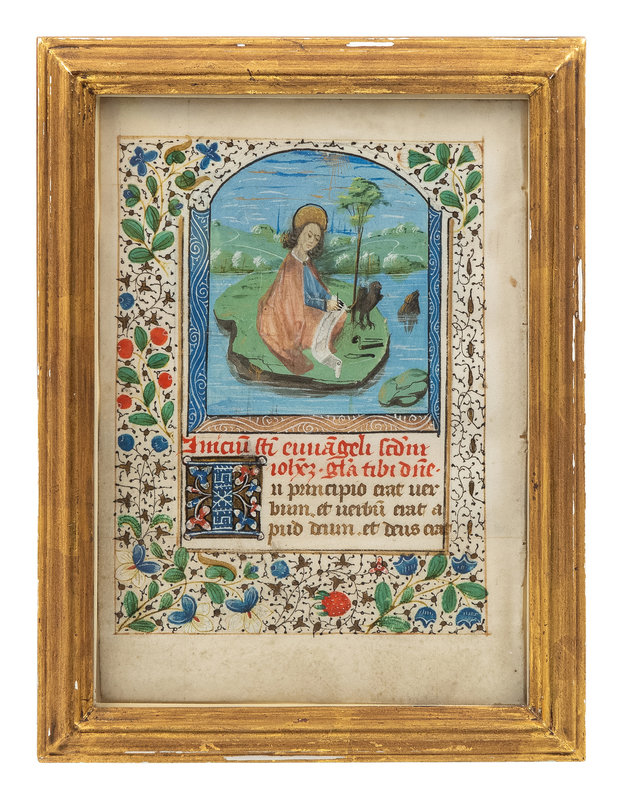 Iniciū sc̄ti euuāgelij scd'm
ioh̄ez. gl̄a tibi dn̄e.
In principio erat uer
bum. et uerbū erat a
pud deum. et deus erat